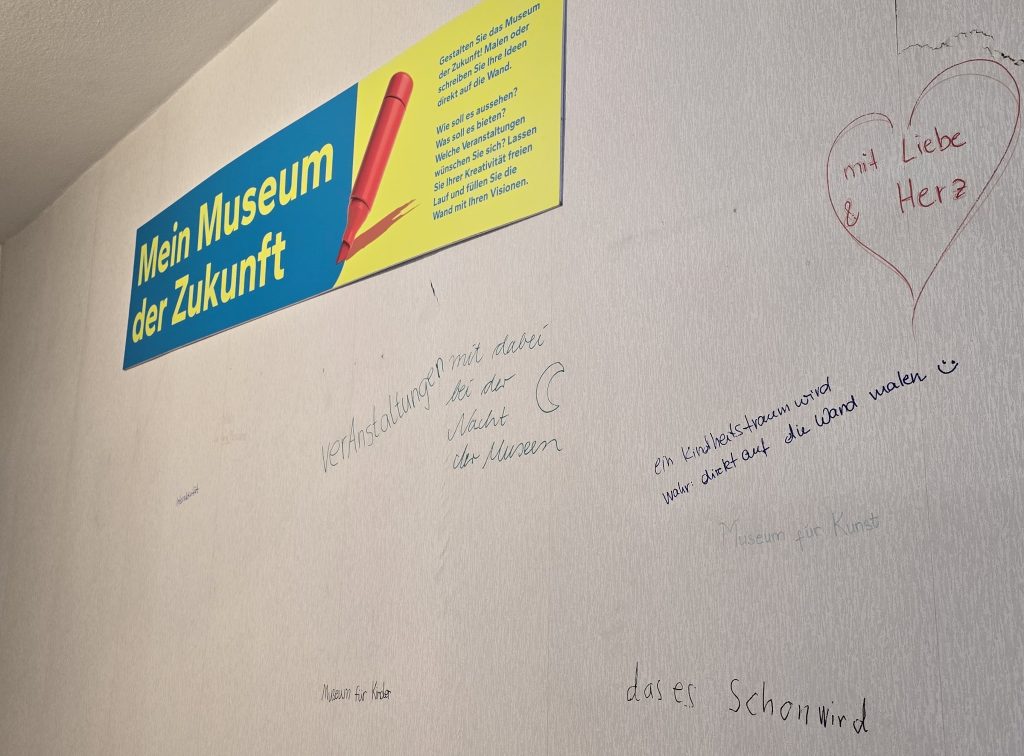 Mein Museum
der Zukunft
Gestalten Sie das Museum
der Zukunft! Malen oder
schreiben Sie Ihre Ideen
direkt auf die Wand.
Wie soll es aussehen?
Was soll es bieten?
Welche Veranstaltungen
wünschen Sie sich? Lassen
Sie Ihrer Kreativität freien
Lauf und füllen Sie die
Wand mit Ihren Visionen.
mit Liebe
& Herz
verAnstaltungen
mit dabei
bei der
Nacht
der Museen
ein Kindheitstraum wird
wahr: direkt auf die Wand malen
Museum für Kunst
Museum für Kinder
das es Schon wird